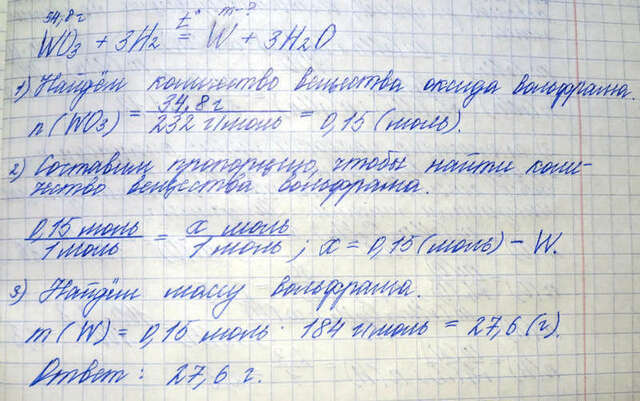 34,8 г t° m-?
WO₃ + 3H₂ = W + 3H₂O
1) Найдём количество вещества оксида вольфрама.
n(WO₃) = 34,8 г / 232 г/моль = 0,15 (моль).
2) Составим пропорцию, чтобы найти коли-
чество вещества вольфрама.
0,15 моль / 1 моль = x моль / 1 моль ; x = 0,15 (моль) - W.
3) Найдём массу вольфрама.
m(W) = 0,15 моль · 184 г/моль = 27,6 (г).
Ответ: 27,6 г.